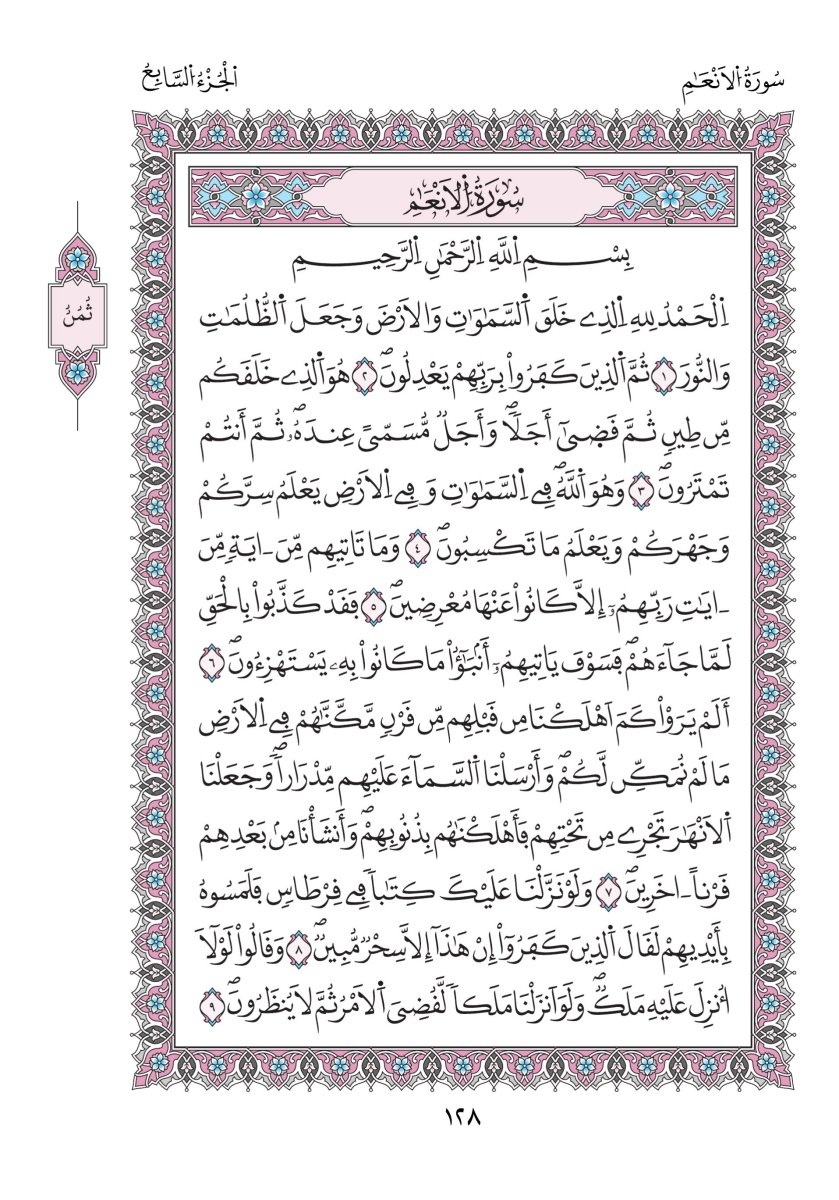 سُورَةُ اُ۬لَانْعَٰمِ
اَ۬لْجُزْءُ اُ۬لسَّابِعُ
سُورَةُ اُ۬لَانْعَٰمِ
بِسْمِ اِ۬للَّهِ اِ۬لرَّحْمَٰنِ اِ۬لرَّحِيمِ
ثُمُنُ
اِ۬لْحَمْدُ لِلهِ اِ۬لذِے خَلَقَ اَ۬لسَّمَٰوَٰتِ وَالَارْضَ وَجَعَلَ اَ۬لظُّلُمَٰتِ
وَالنُّورَ ١ ثُمَّ اَ۬لذِينَ كَفَرُواْ بِرَبِّهِمْ يَعْدِلُونَۖ ٢ هُوَ اَ۬لذِے خَلَقَكُم
مِّن طِينٖ ثُمَّ قَض۪ىٰٓ أَجَلاٗۖ وَأَجَلٞ مُّسَمّىً عِندَهُۥۖ ثُمَّ أَنتُمْ
تَمْتَرُونَۖ ٣ وَهُوَ اَ۬للَّهُۖ فِے اِ۬لسَّمَٰوَٰتِ وَفِے اِ۬لَارْضِ يَعْلَمُ سِرَّكُمْ
وَجَهْرَكُمْ وَيَعْلَمُ مَا تَكْسِبُونَۖ ٤ وَمَا تَاتِيهِم مِّنَ ـ ايَةٖ مِّنَ
ـ ايَٰتِ رَبِّهِمُۥٓ إِلَّا كَانُواْ عَنْهَا مُعْرِضِينَۖ ٥ فَقَدْ كَذَّبُواْ بِالْحَقِّ
لَمَّا جَآءَهُمْۖ فَسَوْفَ يَاتِيهِمُۥٓ أَنۢبَٰٓؤُاْ مَا كَانُواْ بِهِۦ يَسْتَهْزِءُونَۖ ٦
أَلَمْ يَرَوْاْ كَمَ اَهْلَكْنَا مِن قَبْلِهِم مِّن قَرْنٖ مَّكَّنَّٰهُمْ فِے اِ۬لَارْضِ
مَا لَمْ نُمَكِّن لَّكُمْۖ وَأَرْسَلْنَا اَ۬لسَّمَآءَ عَلَيْهِم مِّدْرَاراٗۖ وَجَعَلْنَا
اَ۬لَانْهَٰرَ تَجْرِے مِن تَحْتِهِمْ فَأَهْلَكْنَٰهُم بِذُنُوبِهِمْۖ وَأَنشَأْنَا مِنۢ بَعْدِهِمْ
قَرْناً ـ اخَرِينَۖ ٧ وَلَوْ نَزَّلْنَا عَلَيْكَ كِتَٰباٗ فِے قِرْطَاسٖ فَلَمَسُوهُ
بِأَيْدِيهِمْ لَقَالَ اَ۬لذِينَ كَفَرُوٓاْ إِنْ هَٰذَآ إِلَّا سِحْرٞ مُّبِينٞۖ ٨ وَقَالُواْ لَوْلَآ
أُنزِلَ عَلَيْهِ مَلَكٞۖ وَلَوَ اَنزَلْنَا مَلَكاٗ لَّقُضِيَ اَ۬لَامْرُ ثُمَّ لَا يُنظَرُونَۖ ٩
١٢٨